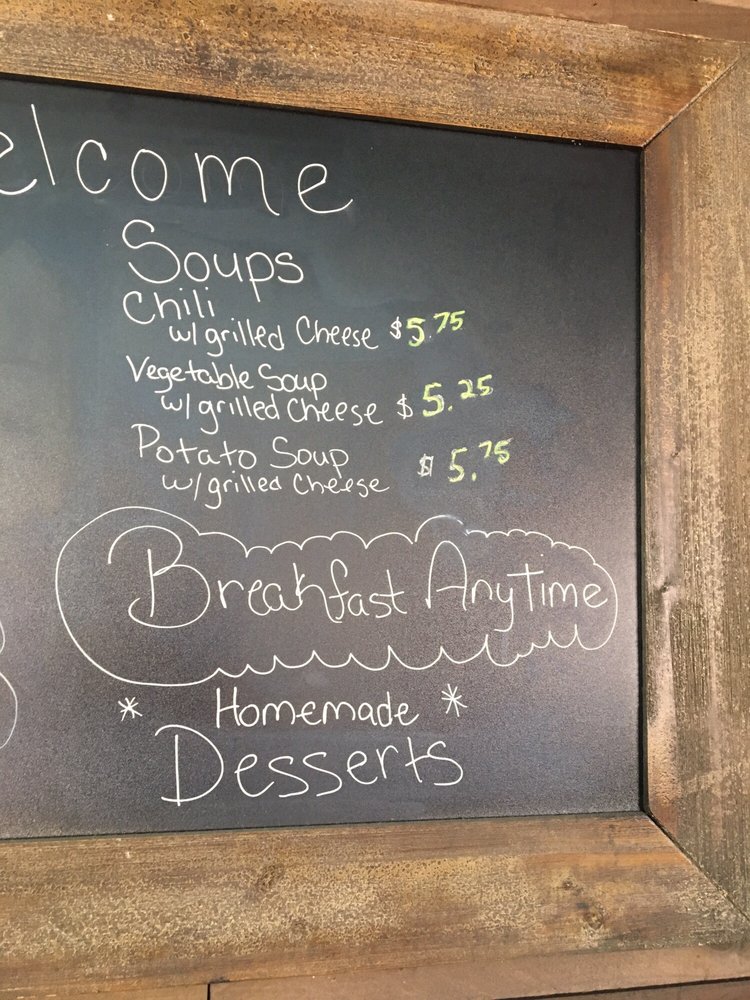 elcome
Soups
Chili
w/grilled Cheese $5.75
Vegetable Soup
w/grilled Cheese $5.25
Potato Soup $5.75
w/grilled Cheese
Breakfast Anytime
* Homemade *
Desserts